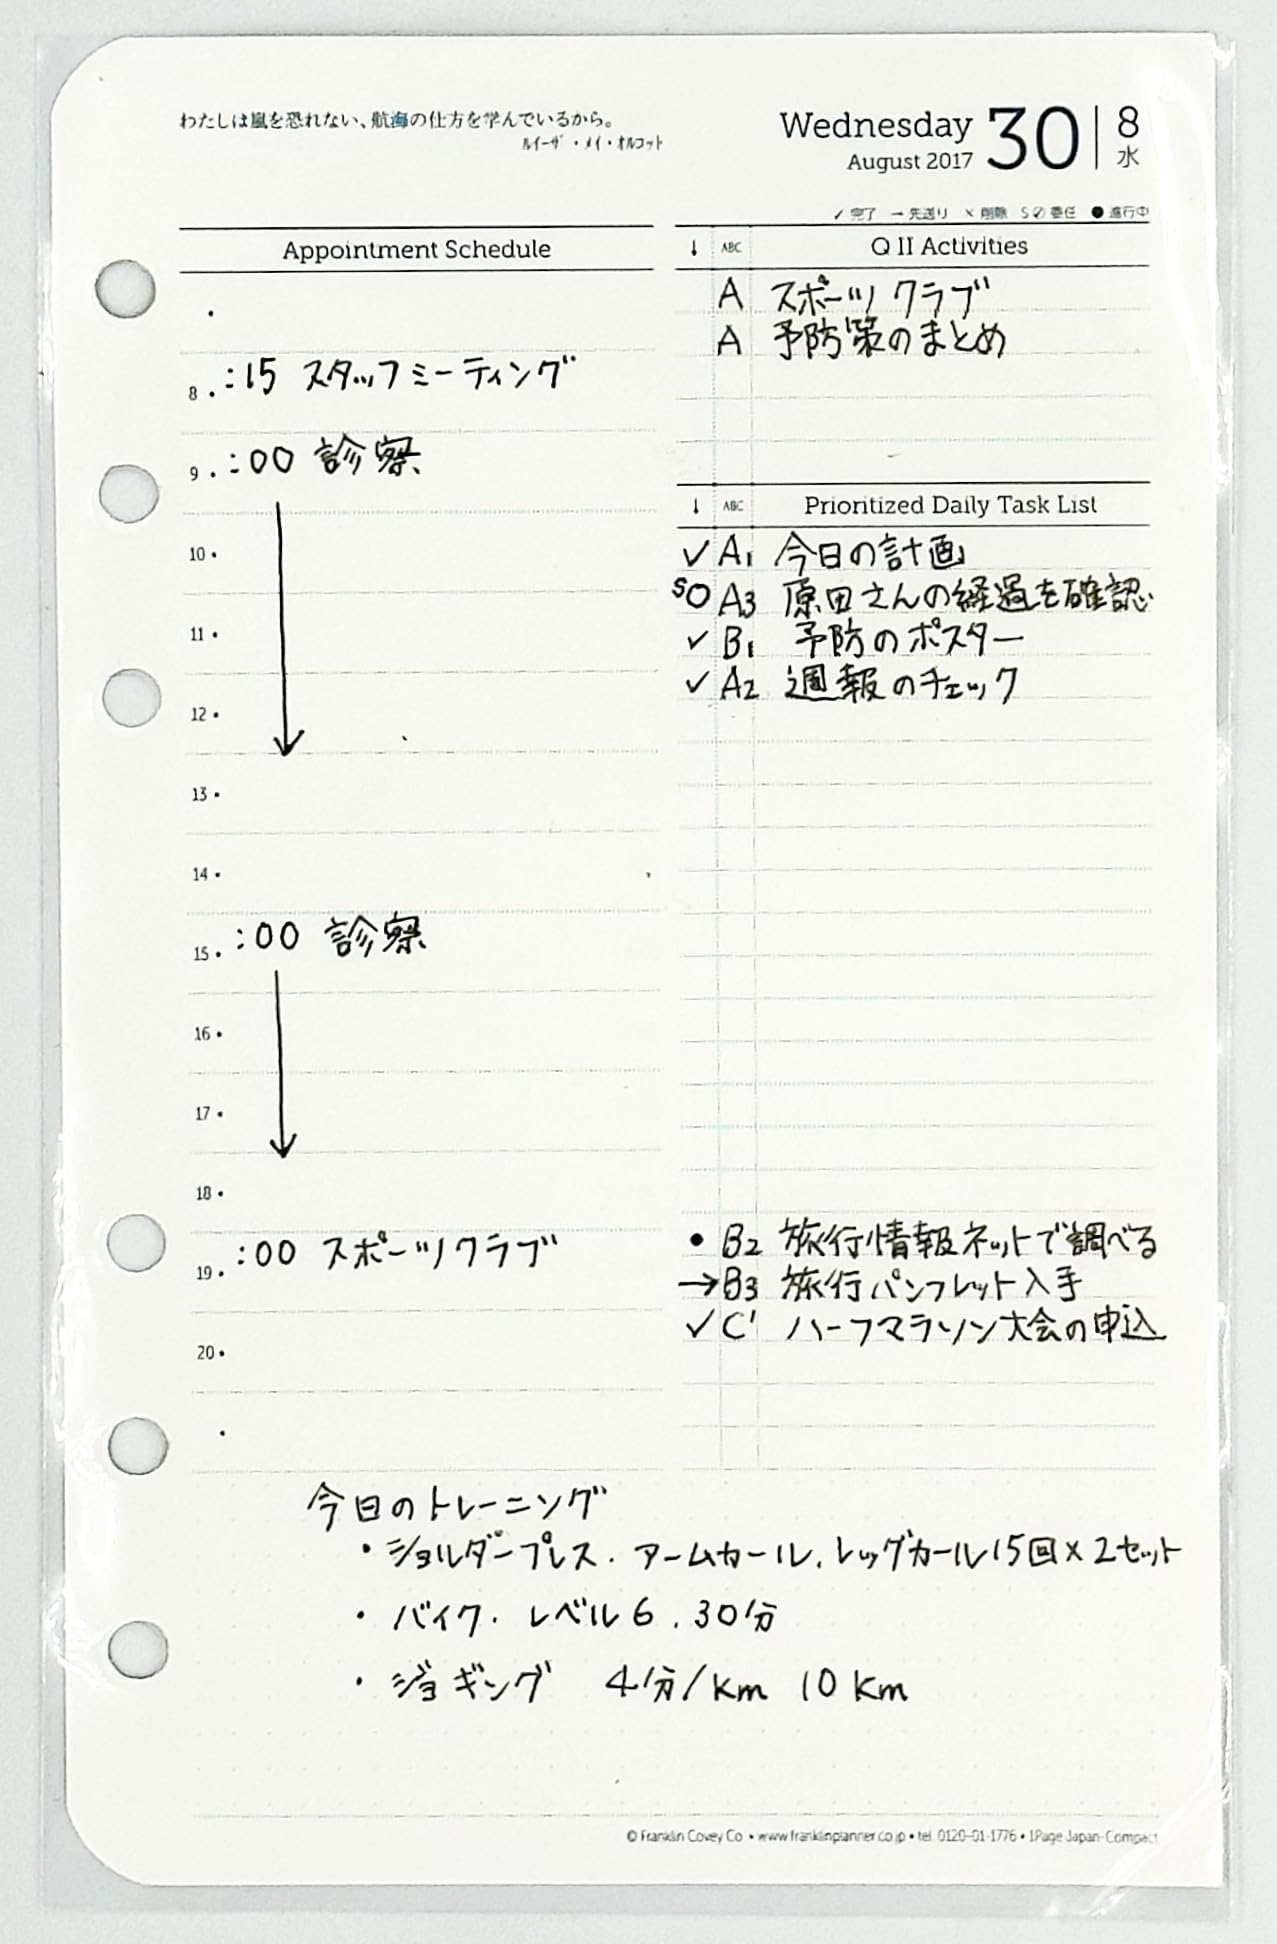 わたしは嵐を恐れない、航海の仕方を学んでいるから。
ルイーザ・メイ・オルコット
Wednesday 30 8
August 2017 水
✓完了 →先送り ×削除 S⊘委任 ●進行中
Appointment Schedule
8 . :15 スタッフミーティング
9 . :00 診察
10 •
11 •
12 •
13 •
14 •
15 . :00 診察
16 •
17 •
18 •
19 . :00 スポーツクラブ
20 •
↓ ABC Q II Activities
A スポーツクラブ
A 予防策のまとめ
↓ ABC Prioritized Daily Task List
✓ A1 今日の計画
SO A3 原田さんの経過を確認
✓ B1 予防のポスター
✓ A2 週報のチェック
• B2 旅行情報ネットで調べる
→ B3 旅行パンフレット入手
✓ C1 ハーフマラソン大会の申込
今日のトレーニング
・ショルダープレス. アームカール. レッグカール15回×2セット
・バイク. レベル6. 30分
・ジョギング 4分/km 10km
© Franklin Covey Co • www.franklinplanner.co.jp • tel. 0120-01-1776 • 1Page Japan-Compact